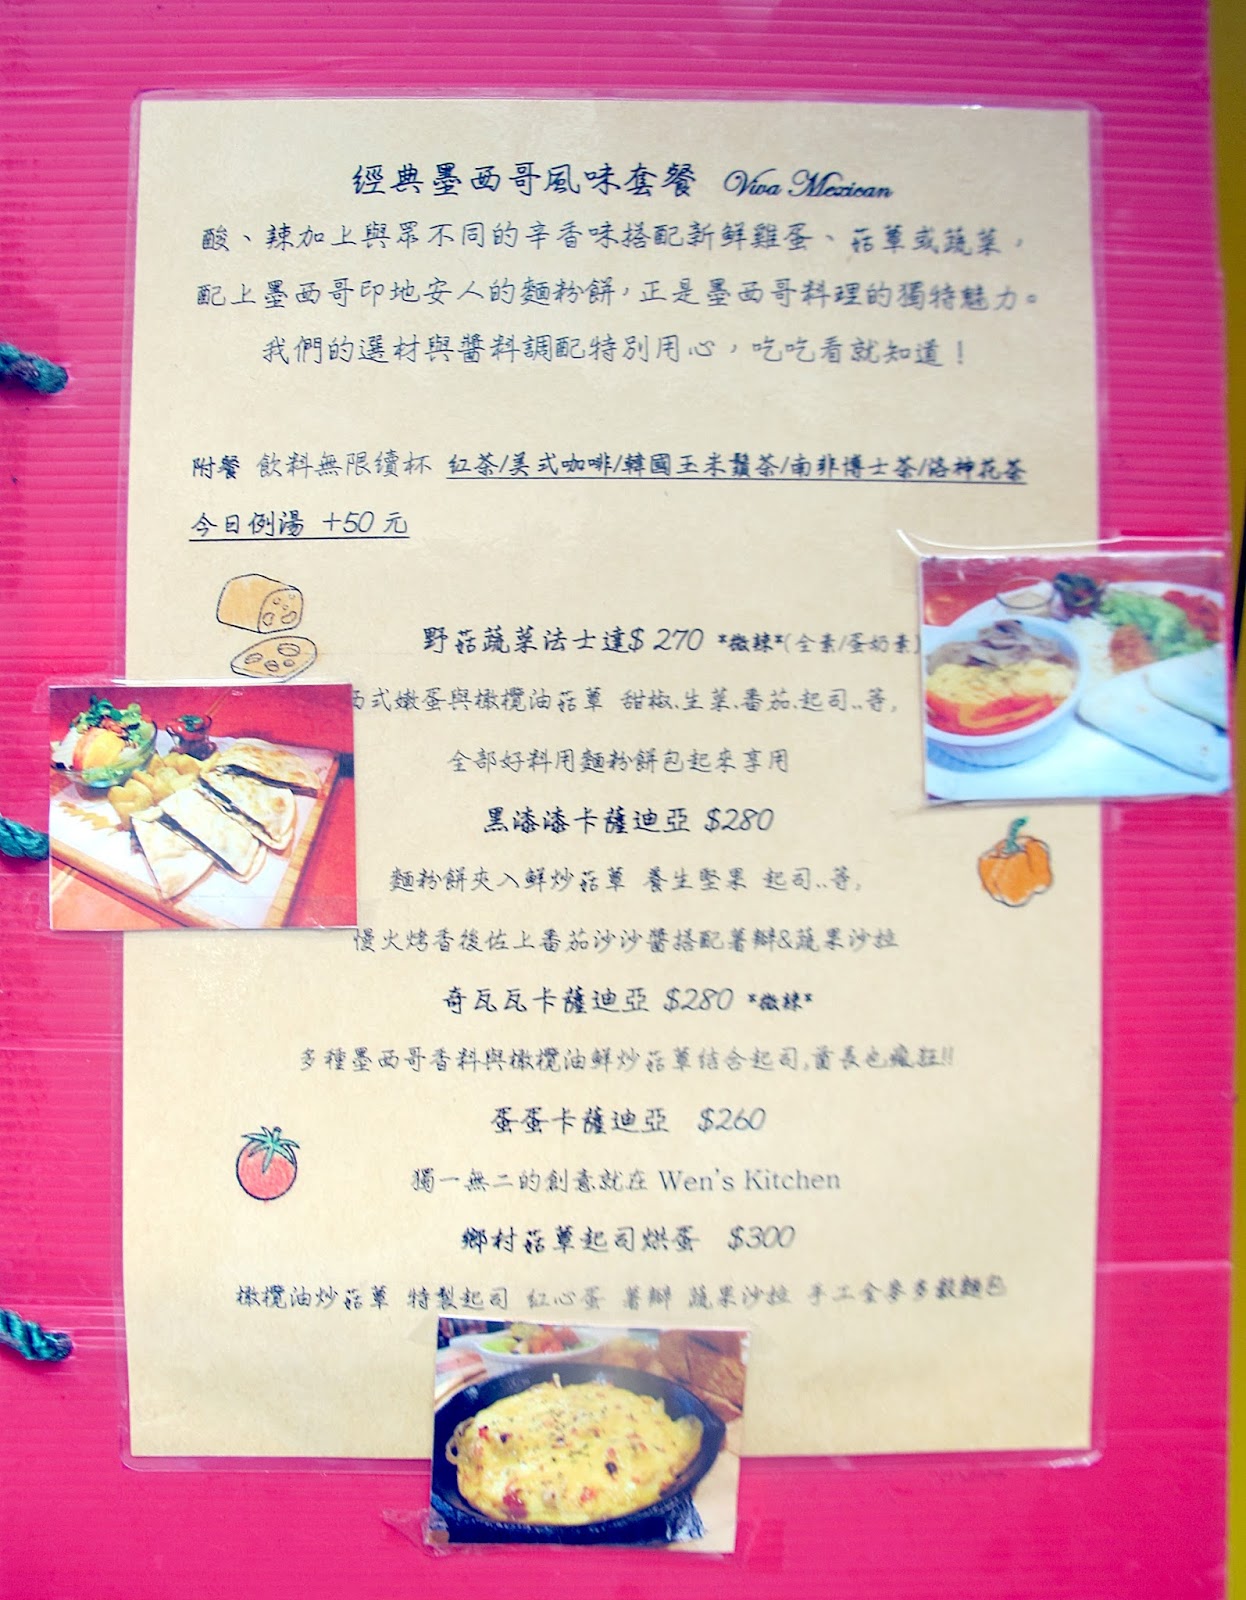 經典墨西哥風味套餐 Viva Mexican
酸、辣加上與眾不同的辛香味搭配新鮮雞蛋、菇蕈或蔬菜，
配上墨西哥印地安人的麵粉餅，正是墨西哥料理的獨特魅力。
我們的選材與醬料調配特別用心，吃吃看就知道！
附餐 飲料無限續杯 紅茶/美式咖啡/韓國玉米鬚茶/南非博士茶/洛神花茶
今日例湯 +50元
野菇蔬菜法士達$ 270 *微辣*(全素/蛋奶素)
西式嫩蛋與橄欖油菇蕈 甜椒.生菜.番茄.起司..等,
全部好料用麵粉餅包起來享用
黑漆漆卡薩迪亞 $280
麵粉餅夾入鮮炒菇蕈 養生堅果 起司..等,
慢火烤香後佐上番茄沙沙醬搭配薯瓣&蔬果沙拉
奇瓦瓦卡薩迪亞 $280 *微辣*
多種墨西哥香料與橄欖油鮮炒菇蕈結合起司,酋長也瘋狂!!
蛋蛋卡薩迪亞 $260
獨一無二的創意就在 Wen's Kitchen
鄉村菇蕈起司烘蛋 $300
橄欖油炒菇蕈 特製起司 紅心蛋 薯瓣 蔬果沙拉 手工全麥多穀麵包